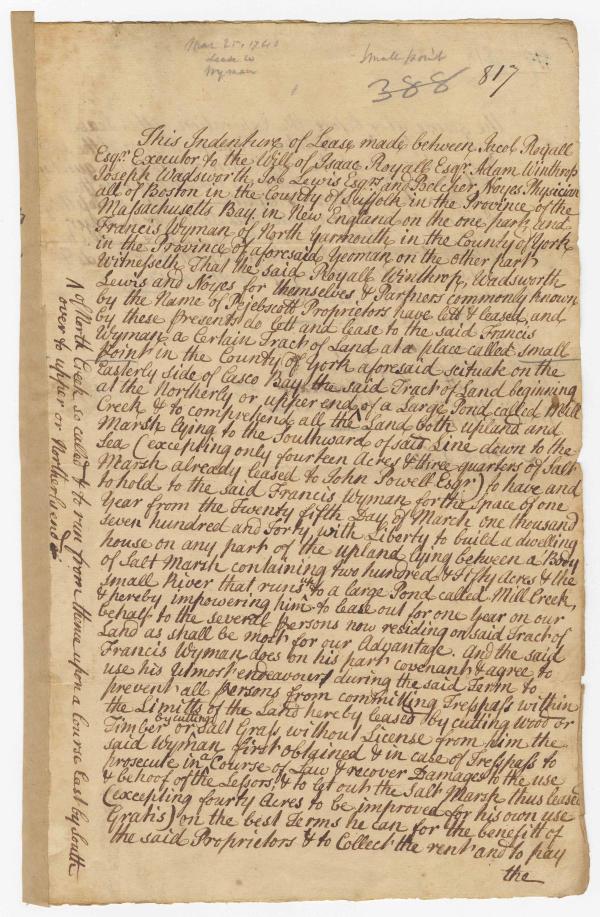 Mar 25, 1740
Lease to
Wyman
Small point
388 817
This Indenture of Lease made between Jacob Royall
Esqr. Executor to the Will of Isaac Royall Esqr. Adam Winthrop
Joseph Wadsworth, Job Lewis Esqrs. and Belcher Noyes Physician
all of Boston in the County of Suffolk in the Province of the
Massachusetts Bay, in New England on the one part, and
Francis Wyman of North Yarmouth in the County of York
in the Province aforesaid Yeoman on the other part
Witnesseth That the said Royall, Winthrop, Wadsworth
Lewis and Noyes for themselves & Partners commonly known
by the Name of Pejebscott Proprietors have lett & leased, and
by these presents do lett and lease to the said Francis
Wyman, a Certain Tract of Land at a place called small
point in the County of York aforesaid scituate on the
Easterly side of Casco Bay, the said Tract of Land beginning
at the Northerly or upper end of a Large Pond called Mill
Creek & to comprehend all the ^ Land both upland and
Marsh lying to the Southward of said Line down to the
Sea (excepting only fourteen Acres & three quarters of Salt
Marsh already leased to John Powell Esqr) to have and
to hold to the said Francis Wyman for the Space of one
Year from the Twenty fifth Day of March one thousand
seven hundred and Forty with Liberty to build a dwelling
house on any part of the upland lying between a Body
of Salt Marsh containing two hundred & Fifty acres & the
small River that runs to a large Pond called Mill Creek,
& hereby impowering him to lease out for one year on our
behalf to the several Persons now residing on said Tract of
Land as shall be most for our Advantage. And the said
Francis Wyman does on his part covenant & agree to
use his utmost endeavours during the said Term to
prevent all Persons from committing Tresspass within
the Limitts of the Land hereby leased by cutting Wood or
Timber or by cutting Salt Grass without License from him the
said Wyman first obtained & in case of Tresspass to
prosecute in a Course of Law & recover Damages to the use
& behoof of the Lessors, & to let out the Salt Marsh thus leased
(excepting fourty Acres to be improved for his own use
Gratis) on the best Terms he can for the benefitt of
the said Proprietors & to Collect the rent and to pay
the
^ of North Creek so called & to run from thence upon a Course East by South
over to upper or Northerly end